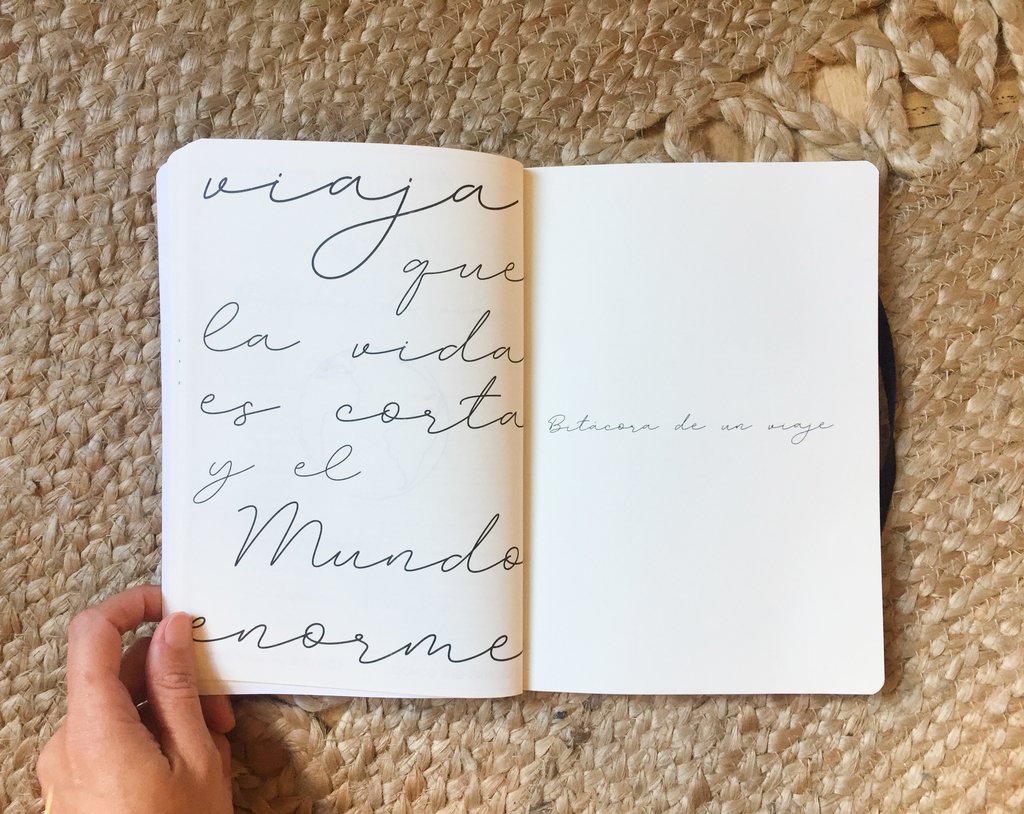 viaja
que
la vida
es corta
y el
Mundo
enorme
Bitácora de un viaje